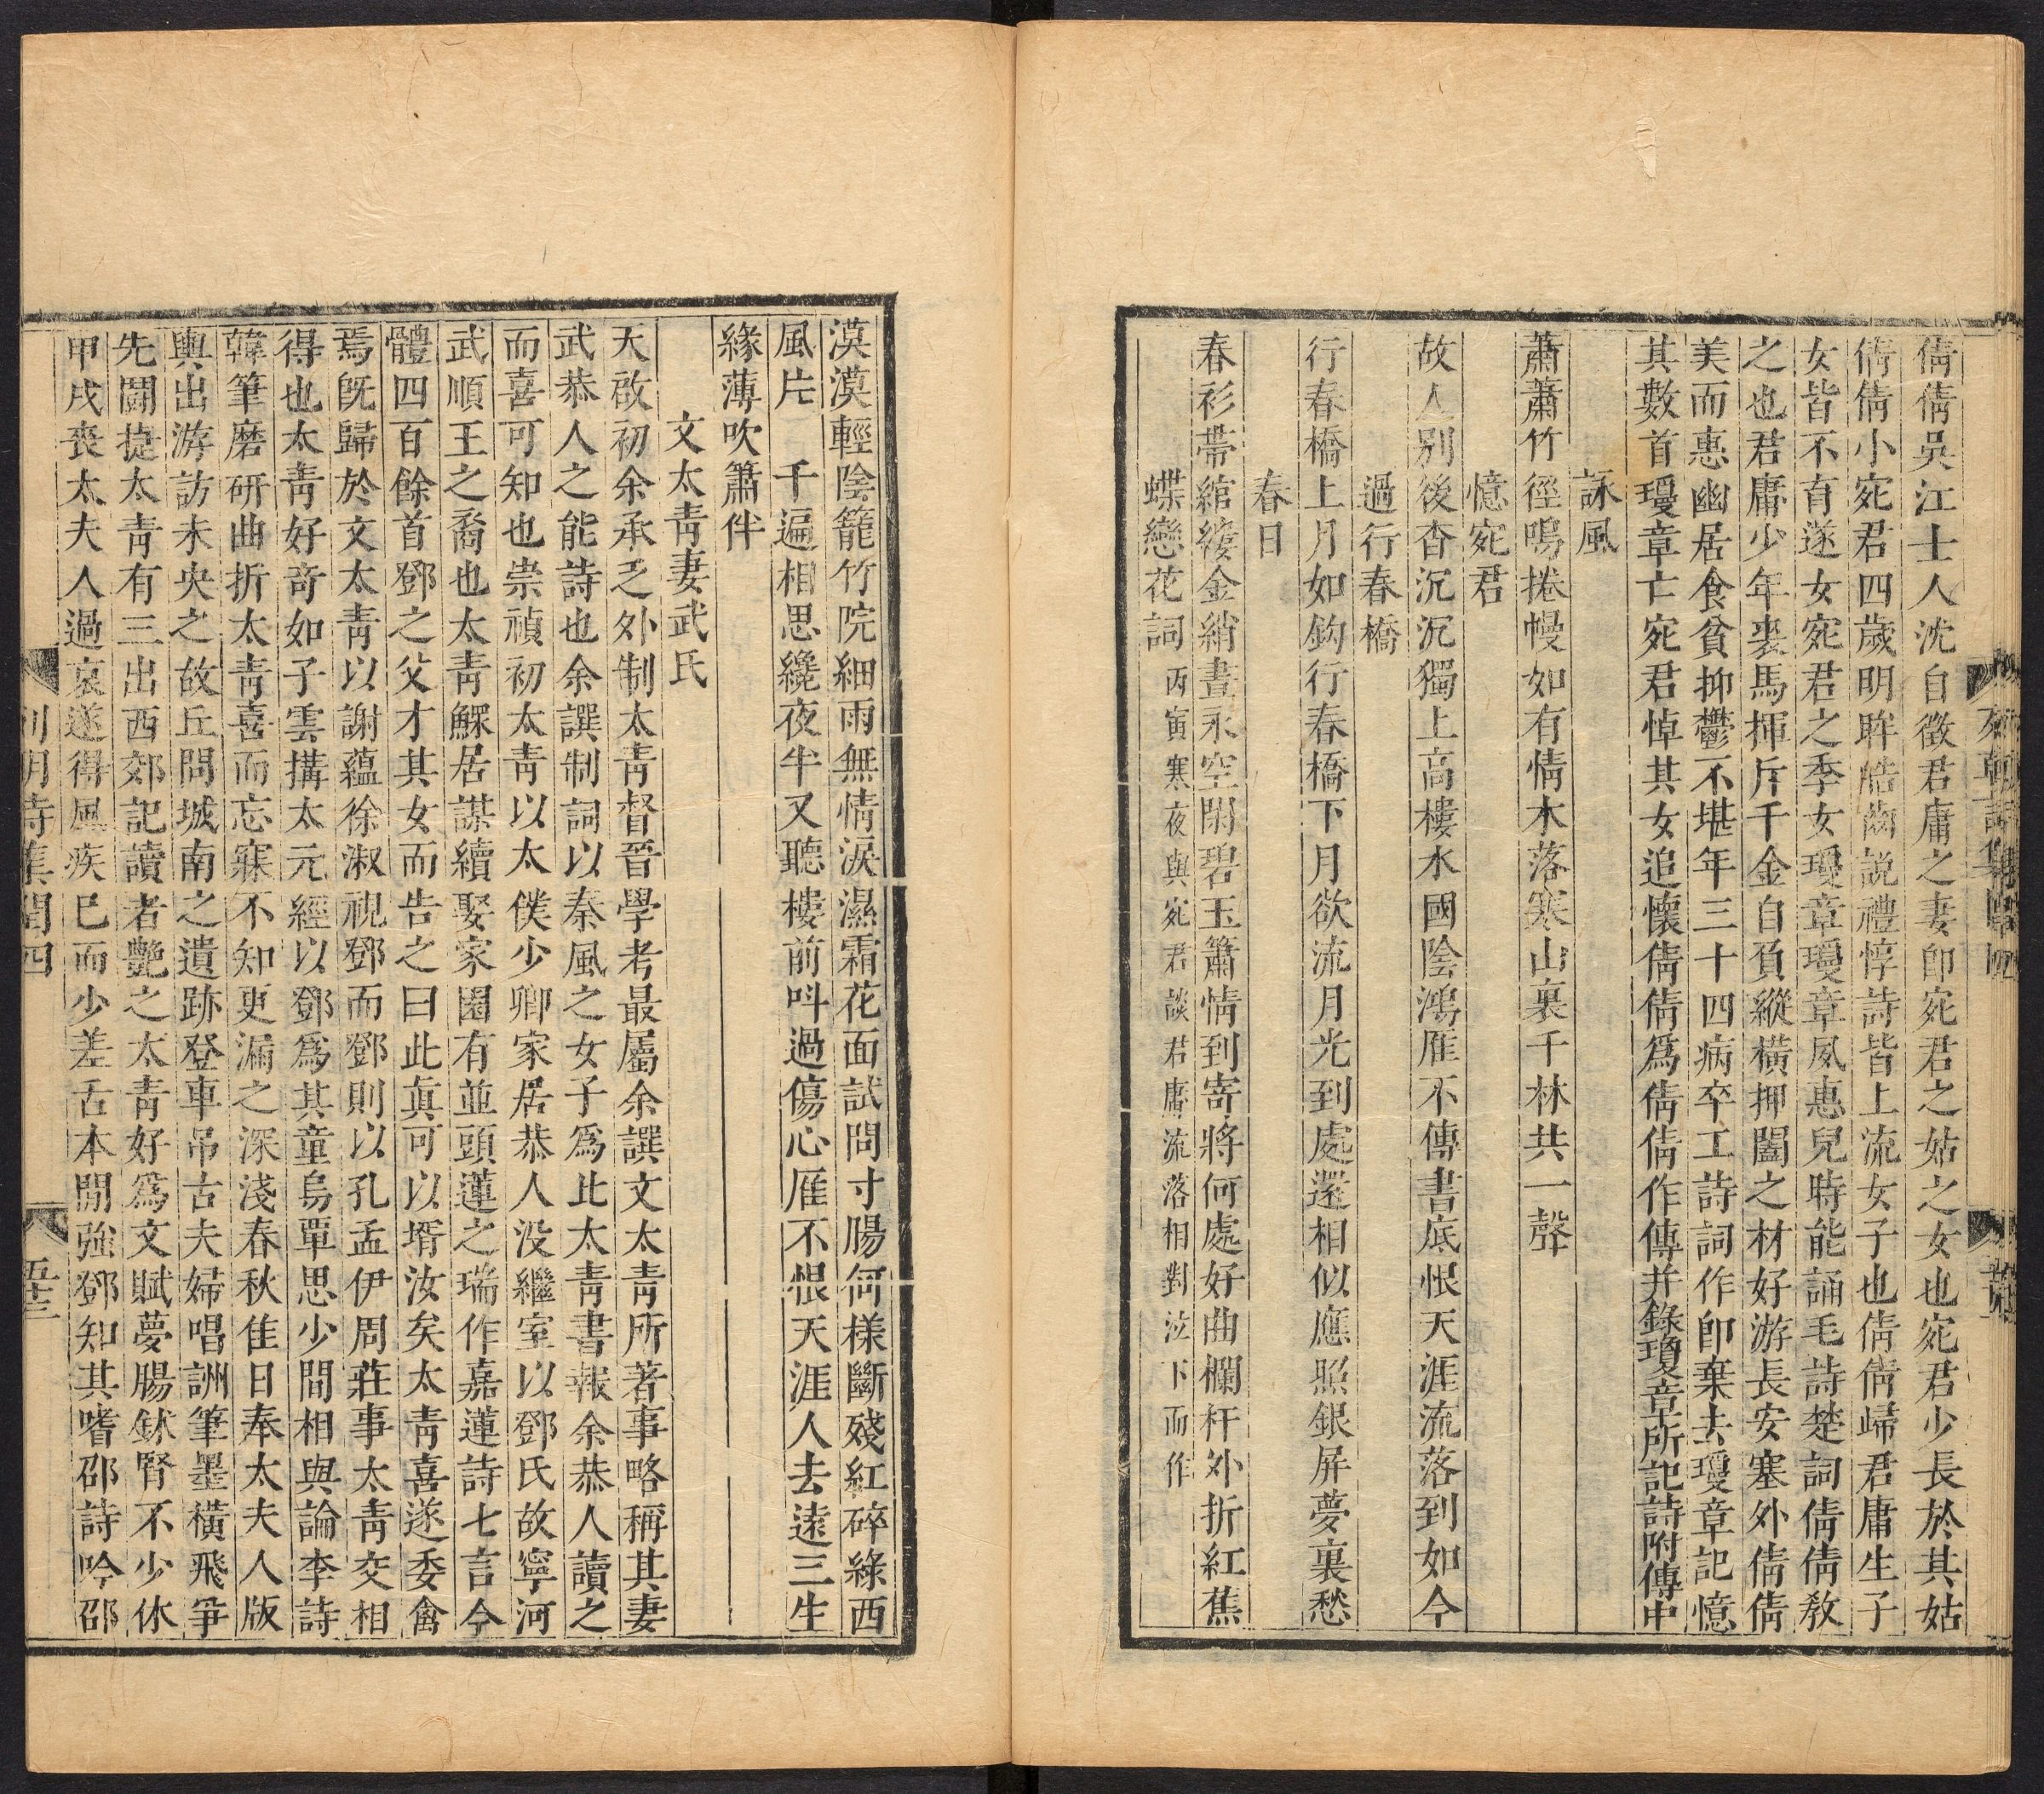 列朝詩集閏四
倩倩吳江士人沈自徵君庸之妻即宛君之姑之女也宛君少長於其姑
倩倩小宛君四歲明眸皓齒說禮惇詩皆上流女子也倩倩歸君庸生子
女皆不育遂女宛君之季女瓊章瓊章夙惠兒時能誦毛詩楚詞倩倩教
之也君庸少年裘馬揮斥千金自負縱橫押闔之材好游長安塞外倩倩
美而惠幽居食貧抑鬱不堪年三十四病卒工詩詞作即棄去瓊章記憶
其數首瓊章亡宛君悼其女追懷倩倩為倩倩作傳并錄瓊章所記詩附傳中
詠風
蕭蕭竹徑鳴捲幔如有情木落寒山裏千林共一聲
憶宛君
故人別後杳沉沉獨上高樓水國陰鴻雁不傳書底恨天涯流落到如今
過行春橋
行春橋上月如鈎行春橋下月欲流月光到處還相似應照銀屏夢裏愁
春日
春衫帶綰縷金綃晝永空閑碧玉簫情到寄將何處好曲欄杆外折紅蕉
蝶戀花詞 丙寅寒夜與宛君談君庸流落相對泣下而作
漠漠輕陰籠竹院細雨無情淚濕霜花面試問寸腸何樣斷殘紅碎綠西
風片　千遍相思纔夜半又聽樓前呌過傷心雁不恨天涯人去遠三生
緣薄吹簫伴
文太青妻武氏
天啟初余承乏外制太青督晉學考最屬余譔文太青所著事略稱其妻
武恭人之能詩也余譔制詞以秦風之女子為此太青書報余恭人讀之
而喜可知也崇禎初太青以太僕少卿家居恭人没繼室以鄧氏故寧河
武順王之裔也太青鰥居謀續娶家園有並頭蓮之瑞作嘉蓮詩七言今
體四百餘首鄧之父才其女而告之曰此真可以壻汝矣太青喜遂委禽
焉旣歸於文太青以謝蘊徐淑視鄧而鄧則以孔孟伊周莊事太青交相
得也太青好奇如子雲搆太元經以鄧為其童烏覃思少間相與論李詩
韓筆磨研曲折太青喜而忘寐不知更漏之深淺春秋佳日奉太夫人版
輿出游訪未央之故丘問城南之遺跡登車吊古夫婦唱詶筆墨橫飛爭
先鬪捷太青有三出西郊記讀者艷之太青好為文賦夢腸鉥腎不少休
甲戌喪太夫人過哀遂得風疾巳而少差舌本閒強鄧知其嗜邵詩吟邵
列明詩集閏四
五十三